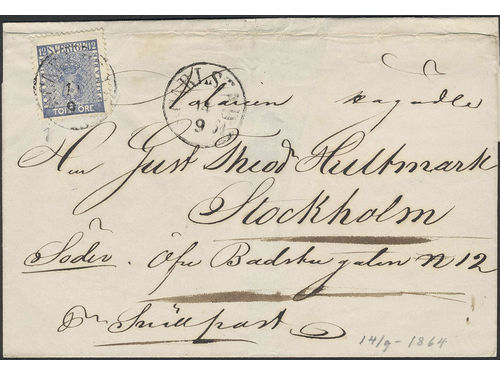 12 SVERIGE 12
TOLF ÖRE
CARLSTAD
14
9
Herr Gust Theod Hultmark
Stockholm
Söder. Öfre Badstu gatan N 12
Snällpost
14/9 - 1864